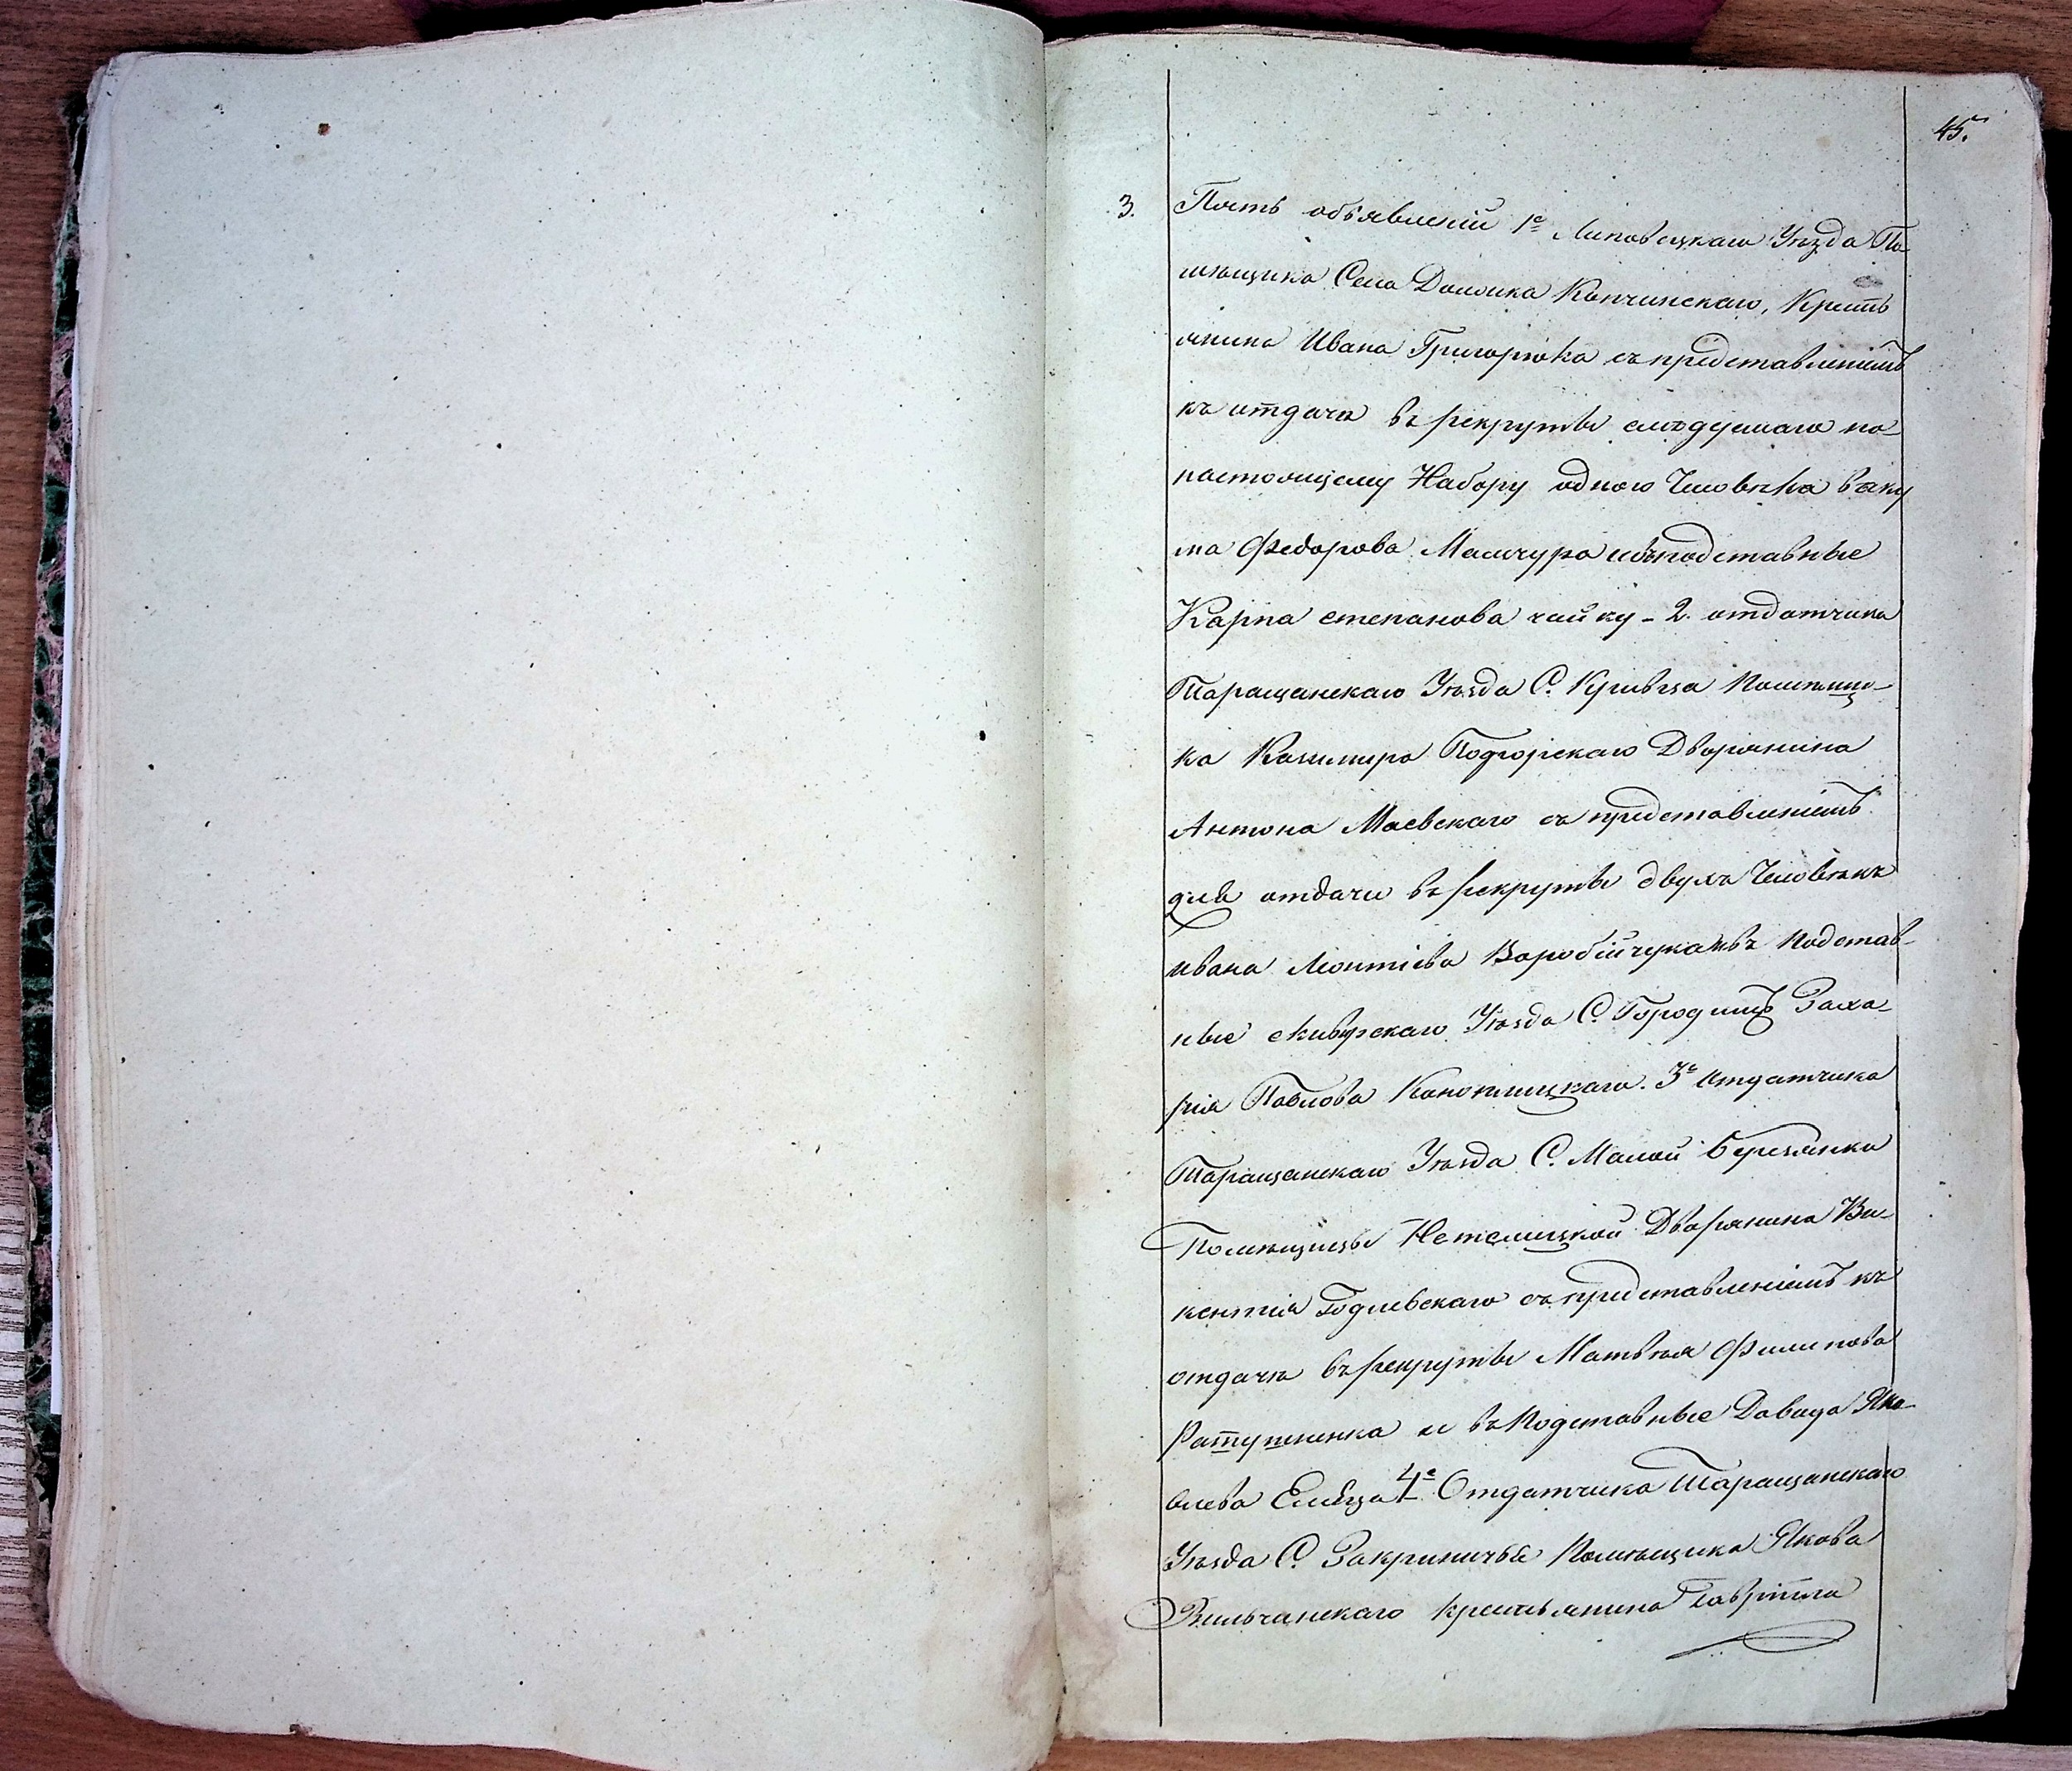 45.
3. Пять объявленій 1е Липовецкаго Уѣзда По-
мѣщика Села Долинка Копчинскаго, Кресть
янина Ивана Григорюка съ представленіемъ
къ отдачѣ въ рекруты слѣдуемаго по-
настоящему Набору одного ЧеловѣкаВаку
ла Федорова Мамчура въ подставные
Карпа степанова чайку – 2. отдатчика
Таращанскаго Уѣзда С. Кривца Помѣщи-
ка Казимира Подгорскаго Дворянина
Антона Маевскаго съ представленіемъ
для отдачи въ рекруты двухъ Человѣкъ
ивана Леонтіева въ подстав-
ные сквирскаго Уѣзда С. Городищъ Заха-
рія Павлова 3е Отдатчика
Таращанскаго Уѣзда С. Малой Березянки
Помѣщицы Нетемицкой Дворянина Ви-
кентія Годлевскаго съ представленіемъ къ
отдачѣ въ рекруты Матвѣя Филипова
Ратушненка и въ Подставные Давида Яко-
влева 4е Отдатчика Таращанскаго
Уѣзда С. Закриничья Помѣщика Якова
Вильчинскаго крестьянина Гавріила